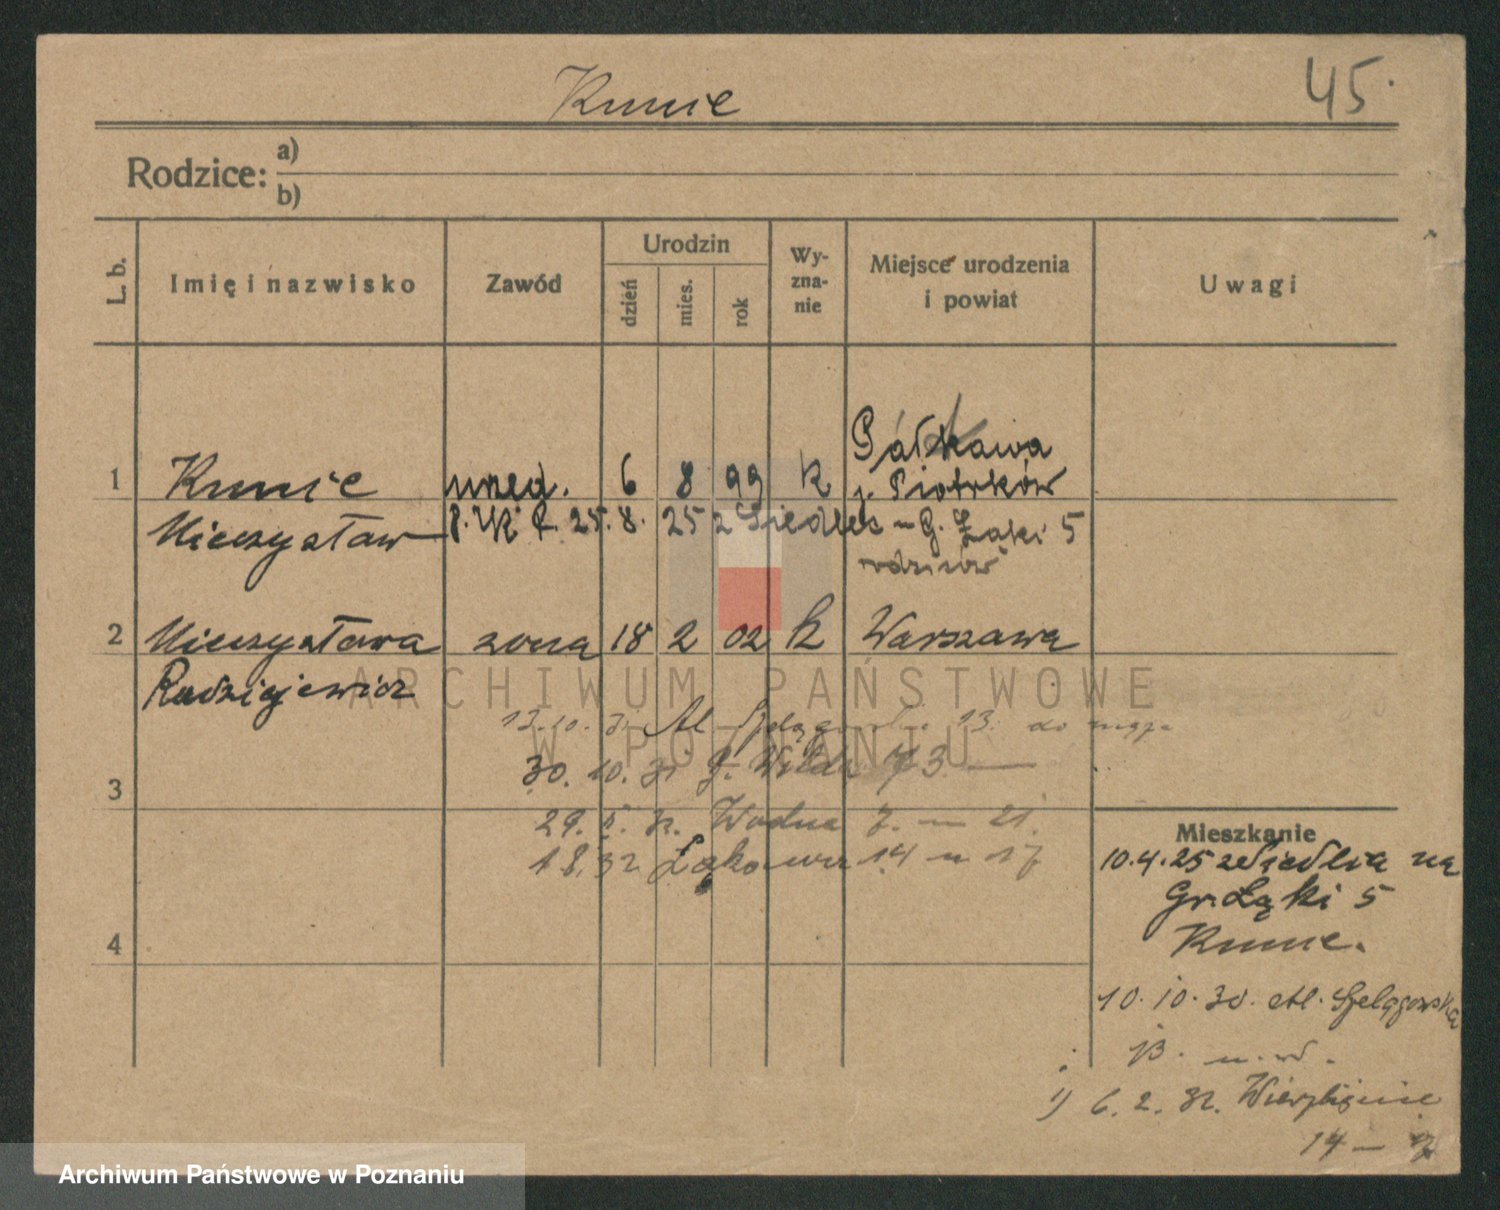 Kunie
45.
Rodzice: a)
b)
L. b.
Imię i nazwisko
Zawód
Urodzin
dzień
mies.
rok
Wy-
zna-
nie
Miejsce urodzenia
i powiat
Uwagi
1
Kunie
urzęd.
6
8
99
k
Piotrków
Mieczysław
25. 8. 25 z Siedlec – G. Łąki 5
rodziców
2
Mieczysława
żona
18
2
02
k
Warszawa
Radziejewicz
ARCHIWUM PAŃSTWOWE
W POZNANIU
13. do
30. 10. 31 G. Wilda 73
3
29. Wodna 7. — 21.
1 8. 32 Łąkowa 14 m 17
4
Mieszkanie
10.4.25 z Siedlca na
Gr. Łąki 5
Kunie.
10. 10. 30. Al. Szelągowska
13.
1) 6. 2. 32. Wierzbięcice
14 —
Archiwum Państwowe w Poznaniu